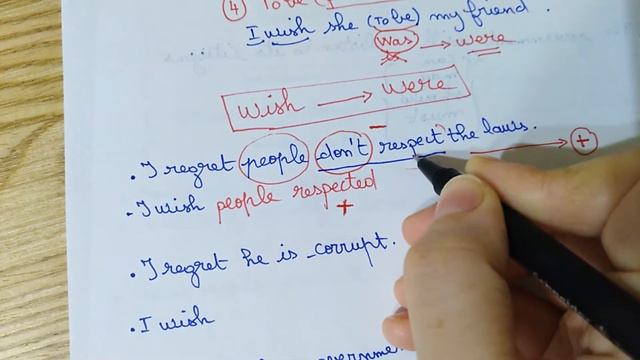 ④ To be (
I wish she (To be) my friend.
was → were
wish → were
-
. I regret people don't respect the laws. → +
. I wish people respected
+
. I regret he is corrupt.
. I wish